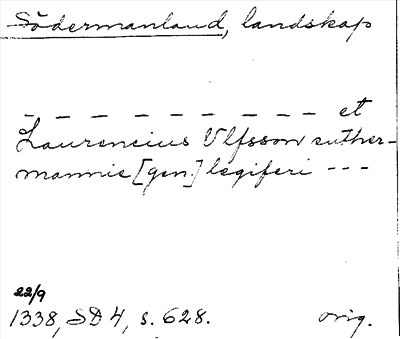 Södermanland, landskap
- - - - - - - - - et
Laurencius Ulfsson suther-
mannie [gen.] legiferi - - -
22/9
1338, SD 4, s. 628. orig.